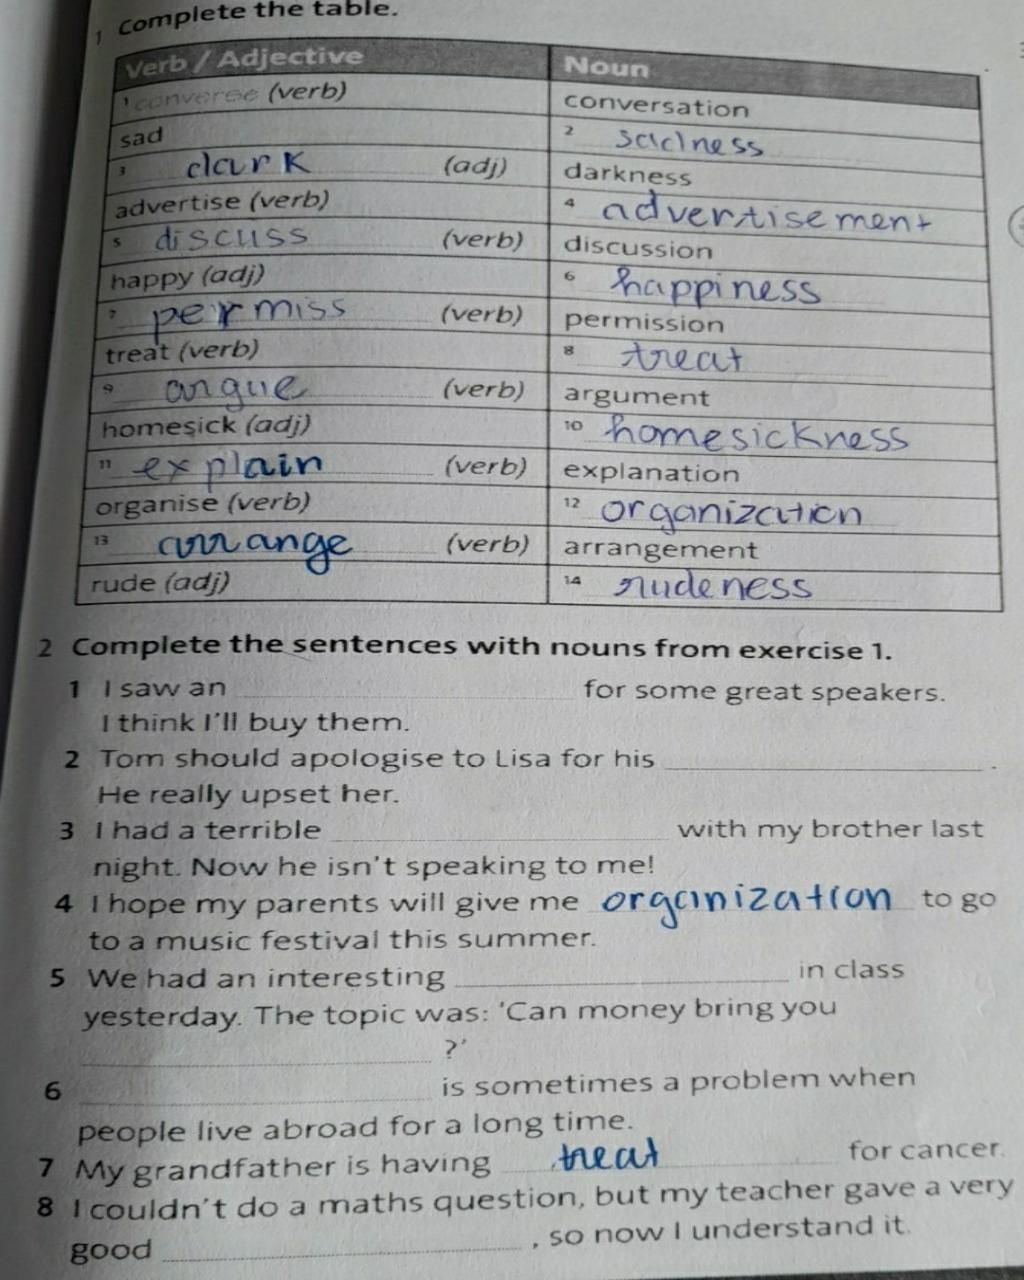 1 Complete the table.
Verb / Adjective Noun
1 converse (verb) conversation
sad 2 sadness
3 dark (adj) darkness
advertise (verb) 4 advertisement
5 discuss (verb) discussion
happy (adj) 6 happiness
7 permiss (verb) permission
treat (verb) 8 treat
9 argue (verb) argument
homesick (adj) 10 homesickness
11 explain (verb) explanation
organise (verb) 12 organization
13 arrange (verb) arrangement
rude (adj) 14 rudeness
2 Complete the sentences with nouns from exercise 1.
1 I saw an for some great speakers.
I think I'll buy them.
2 Tom should apologise to Lisa for his .
He really upset her.
3 I had a terrible with my brother last
night. Now he isn't speaking to me!
4 I hope my parents will give me organization to go
to a music festival this summer.
5 We had an interesting in class
yesterday. The topic was: 'Can money bring you
?'
6 is sometimes a problem when
people live abroad for a long time.
7 My grandfather is having treat for cancer.
8 I couldn't do a maths question, but my teacher gave a very
good , so now I understand it.